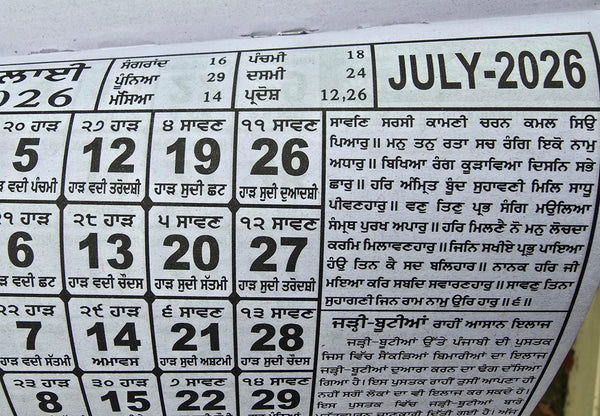 ਲਾਈ
2026
ਸੰਗਰਾਂਦ 16
ਪੂੰਨਿਆ 29
ਮੱਸਿਆ 14
ਪੰਚਮੀ 18
ਦਸਮੀ 24
ਪ੍ਰਦੋਸ਼ 12,26
JULY-2026
੨੦ ਹਾੜ ੨੭ ਹਾੜ ੪ ਸਾਵਣ ੧੧ ਸਾਵਣ
5 12 19 26
ਹਾੜ ਵਦੀ ਪੰਚਮੀ ਹਾੜ ਵਦੀ ਤਰੋਦਸ਼ੀ ਹਾੜ ਸੁਦੀ ਛਟ ਹਾੜ ਸੁਦੀ ਦੁਆਦਸ਼ੀ
੨੧ ਹਾੜ ੨੮ ਹਾੜ ੫ ਸਾਵਣ ੧੨ ਸਾਵਣ
6 13 20 27
ਹਾੜ ਵਦੀ ਛਟ ਹਾੜ ਵਦੀ ਚੌਦਸ ਹਾੜ ਸੁਦੀ ਸੱਤਮੀ ਹਾੜ ਸੁਦੀ ਤਰੋਦਸ਼ੀ
੨੨ ਹਾੜ ੨੯ ਹਾੜ ੬ ਸਾਵਣ ੧੩ ਸਾਵਣ
7 14 21 28
ਹਾੜ ਵਦੀ ਸੱਤਮੀ ਅਮਾਵਸ ਹਾੜ ਸੁਦੀ ਅਸ਼ਟਮੀ ਹਾੜ ਸੁਦੀ ਚੌਦਸ
੨੩ ਹਾੜ ੩੦ ਹਾੜ ੭ ਸਾਵਣ ੧੪ ਸਾਵਣ
8 15 22 29
ਸਾਵਣਿ ਸਰਸੀ ਕਾਮਣੀ ਚਰਨ ਕਮਲ ਸਿਉ
ਪਿਆਰੁ॥ ਮਨੁ ਤਨੁ ਰਤਾ ਸਚ ਰੰਗਿ ਇਕੋ ਨਾਮੁ
ਅਧਾਰੁ॥ ਬਿਖਿਆ ਰੰਗ ਕੂੜਾਵਿਆ ਦਿਸਨਿ ਸਭੇ
ਛਾਰੁ॥ ਹਰਿ ਅੰਮ੍ਰਿਤ ਬੂੰਦ ਸੁਹਾਵਣੀ ਮਿਲਿ ਸਾਧੂ
ਪੀਵਣਹਾਰੁ॥ ਵਣੁ ਤਿਣੁ ਪ੍ਰਭ ਸੰਗਿ ਮਉਲਿਆ
ਸੰਮ੍ਰਥ ਪੁਰਖ ਅਪਾਰੁ॥ ਹਰਿ ਮਿਲਣੈ ਨੋ ਮਨੁ ਲੋਚਦਾ
ਕਰਮਿ ਮਿਲਾਵਣਹਾਰੁ॥ ਜਿਨਿ ਸਖੀਏ ਪ੍ਰਭੁ ਪਾਇਆ
ਹੰਉ ਤਿਨ ਕੈ ਸਦ ਬਲਿਹਾਰ॥ ਨਾਨਕ ਹਰਿ ਜੀ
ਮਇਆ ਕਰਿ ਸਬਦਿ ਸਵਾਰਣਹਾਰੁ॥ ਸਾਵਣੁ ਤਿਨਾ
ਸੁਹਾਗਣੀ ਜਿਨ ਰਾਮ ਨਾਮੁ ਉਰਿ ਹਾਰੁ॥੬॥
ਜੜ੍ਹੀ-ਬੂਟੀਆਂ ਰਾਹੀਂ ਆਸਾਨ ਇਲਾਜ
ਜੜ੍ਹੀ-ਬੂਟੀਆਂ ਉੱਤੇ ਪੰਜਾਬੀ ਦੀ ਪੁਸਤਕ
ਜਿਸ ਵਿੱਚ ਸੈਂਕੜਿਆਂ ਬਿਮਾਰੀਆਂ ਦਾ ਇਲਾਜ
ਜੜ੍ਹੀ-ਬੂਟੀਆਂ ਦੁਆਰਾ ਕਰਨ ਦਾ ਢੰਗ ਦੱਸਿਆ
ਗਿਆ ਹੈ। ਇਸ ਪੁਸਤਕ ਰਾਹੀਂ ਤੁਸੀਂ ਆਪਣਾ ਹੀ
ਨਹੀਂ ਸਗੋਂ ਲੋਕਾਂ ਦਾ ਵੀ ਇਲਾਜ ਕਰ ਸਕਦੇ ਹੋ।
ਇਸ ਪੁਸਤਕ ਵਿੱਚ ਜੜ੍ਹੀ-ਬੂਟੀਆਂ ਬਾਰੇ